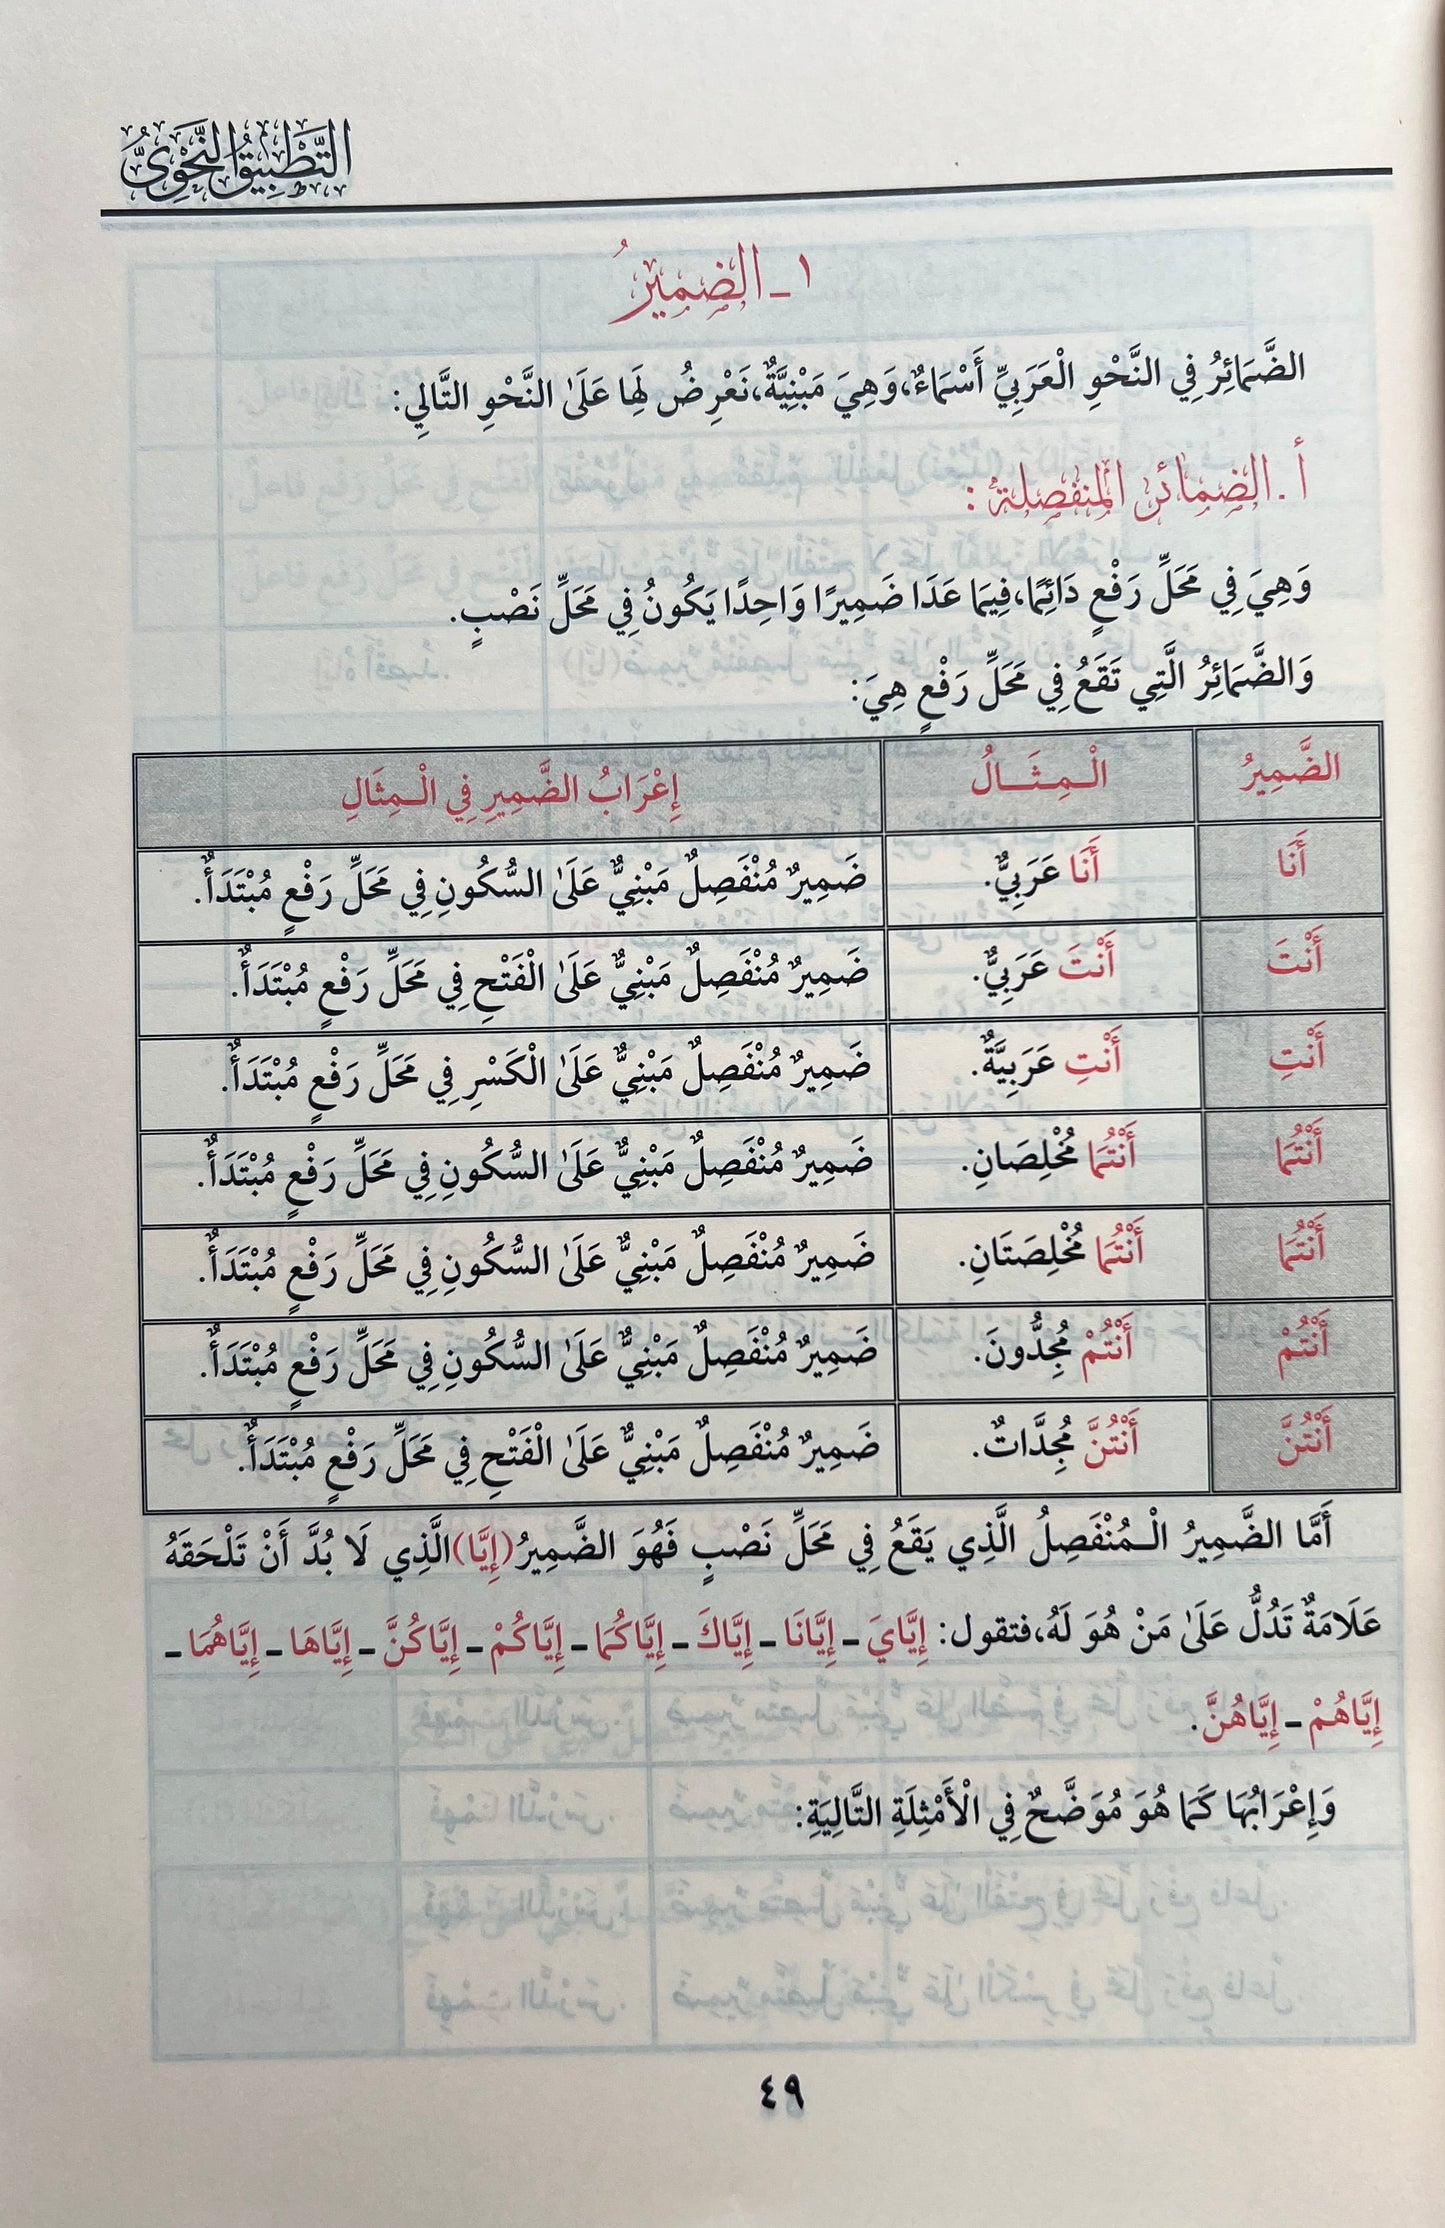 التَّطْبِيقُ النَّحْوِيُّ
١ - الضميرُ
الضَّمَائِرُ فِي النَّحْوِ الْعَرَبِيِّ أَسْمَاءٌ، وَهِيَ مَبْنِيَّةٌ، نَعْرِضُ لَهَا عَلَىٰ النَّحْوِ التَّالِي:
أ. الضمائر المنفصلة:
وَهِيَ فِي مَحَلِّ رَفْعٍ دَائِمًا، فِيمَا عَدَا ضَمِيرًا وَاحِدًا يَكُونُ فِي مَحَلِّ نَصْبٍ.
وَالضَّمَائِرُ الَّتِي تَقَعُ فِي مَحَلِّ رَفْعٍ هِيَ:
الضَّمِيرُ الْمِثَالُ إِعْرَابُ الضَّمِيرِ فِي الْمِثَالِ
أَنَا أَنَا عَرَبِيٌّ. ضَمِيرٌ مُنْفَصِلٌ مَبْنِيٌّ عَلَىٰ السُّكُونِ فِي مَحَلِّ رَفْعٍ مُبْتَدَأٌ.
أَنْتَ أَنْتَ عَرَبِيٌّ. ضَمِيرٌ مُنْفَصِلٌ مَبْنِيٌّ عَلَىٰ الْفَتْحِ فِي مَحَلِّ رَفْعٍ مُبْتَدَأٌ.
أَنْتِ أَنْتِ عَرَبِيَّةٌ. ضَمِيرٌ مُنْفَصِلٌ مَبْنِيٌّ عَلَىٰ الْكَسْرِ فِي مَحَلِّ رَفْعٍ مُبْتَدَأٌ.
أَنْتُمَا أَنْتُمَا مُخْلِصَانِ. ضَمِيرٌ مُنْفَصِلٌ مَبْنِيٌّ عَلَىٰ السُّكُونِ فِي مَحَلِّ رَفْعٍ مُبْتَدَأٌ.
أَنْتُمَا أَنْتُمَا مُخْلِصَتَانِ. ضَمِيرٌ مُنْفَصِلٌ مَبْنِيٌّ عَلَىٰ السُّكُونِ فِي مَحَلِّ رَفْعٍ مُبْتَدَأٌ.
أَنْتُمْ أَنْتُمْ مُجِدُّونَ. ضَمِيرٌ مُنْفَصِلٌ مَبْنِيٌّ عَلَىٰ السُّكُونِ فِي مَحَلِّ رَفْعٍ مُبْتَدَأٌ.
أَنْتُنَّ أَنْتُنَّ مُجِدَّاتٌ. ضَمِيرٌ مُنْفَصِلٌ مَبْنِيٌّ عَلَىٰ الْفَتْحِ فِي مَحَلِّ رَفْعٍ مُبْتَدَأٌ.
أَمَّا الضَّمِيرُ الْمُنْفَصِلُ الَّذِي يَقَعُ فِي مَحَلِّ نَصْبٍ فَهُوَ الضَّمِيرُ (إِيَّا) الَّذِي لَا بُدَّ أَنْ تَلْحَقَهُ
عَلَامَةٌ تَدُلُّ عَلَىٰ مَنْ هُوَ لَهُ، فتقول: إِيَّايَ - إِيَّانَا - إِيَّاكَ - إِيَّاكُمَا - إِيَّاكُمْ - إِيَّاكُنَّ - إِيَّاهَا - إِيَّاهُمَا -
إِيَّاهُمْ - إِيَّاهُنَّ.
وَإِعْرَابُهَا كَمَا هُوَ مُوَضَّحٌ فِي الْأَمْثِلَةِ التَّالِيَةِ:
٤٩